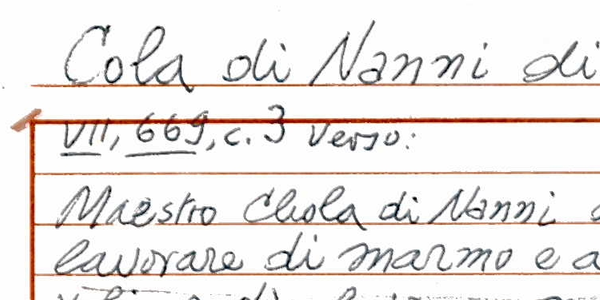 Cola di Nanni di
VII, 669, c. 3 verso:
Maestro Chola di Nanni
lavorare di marmo e a